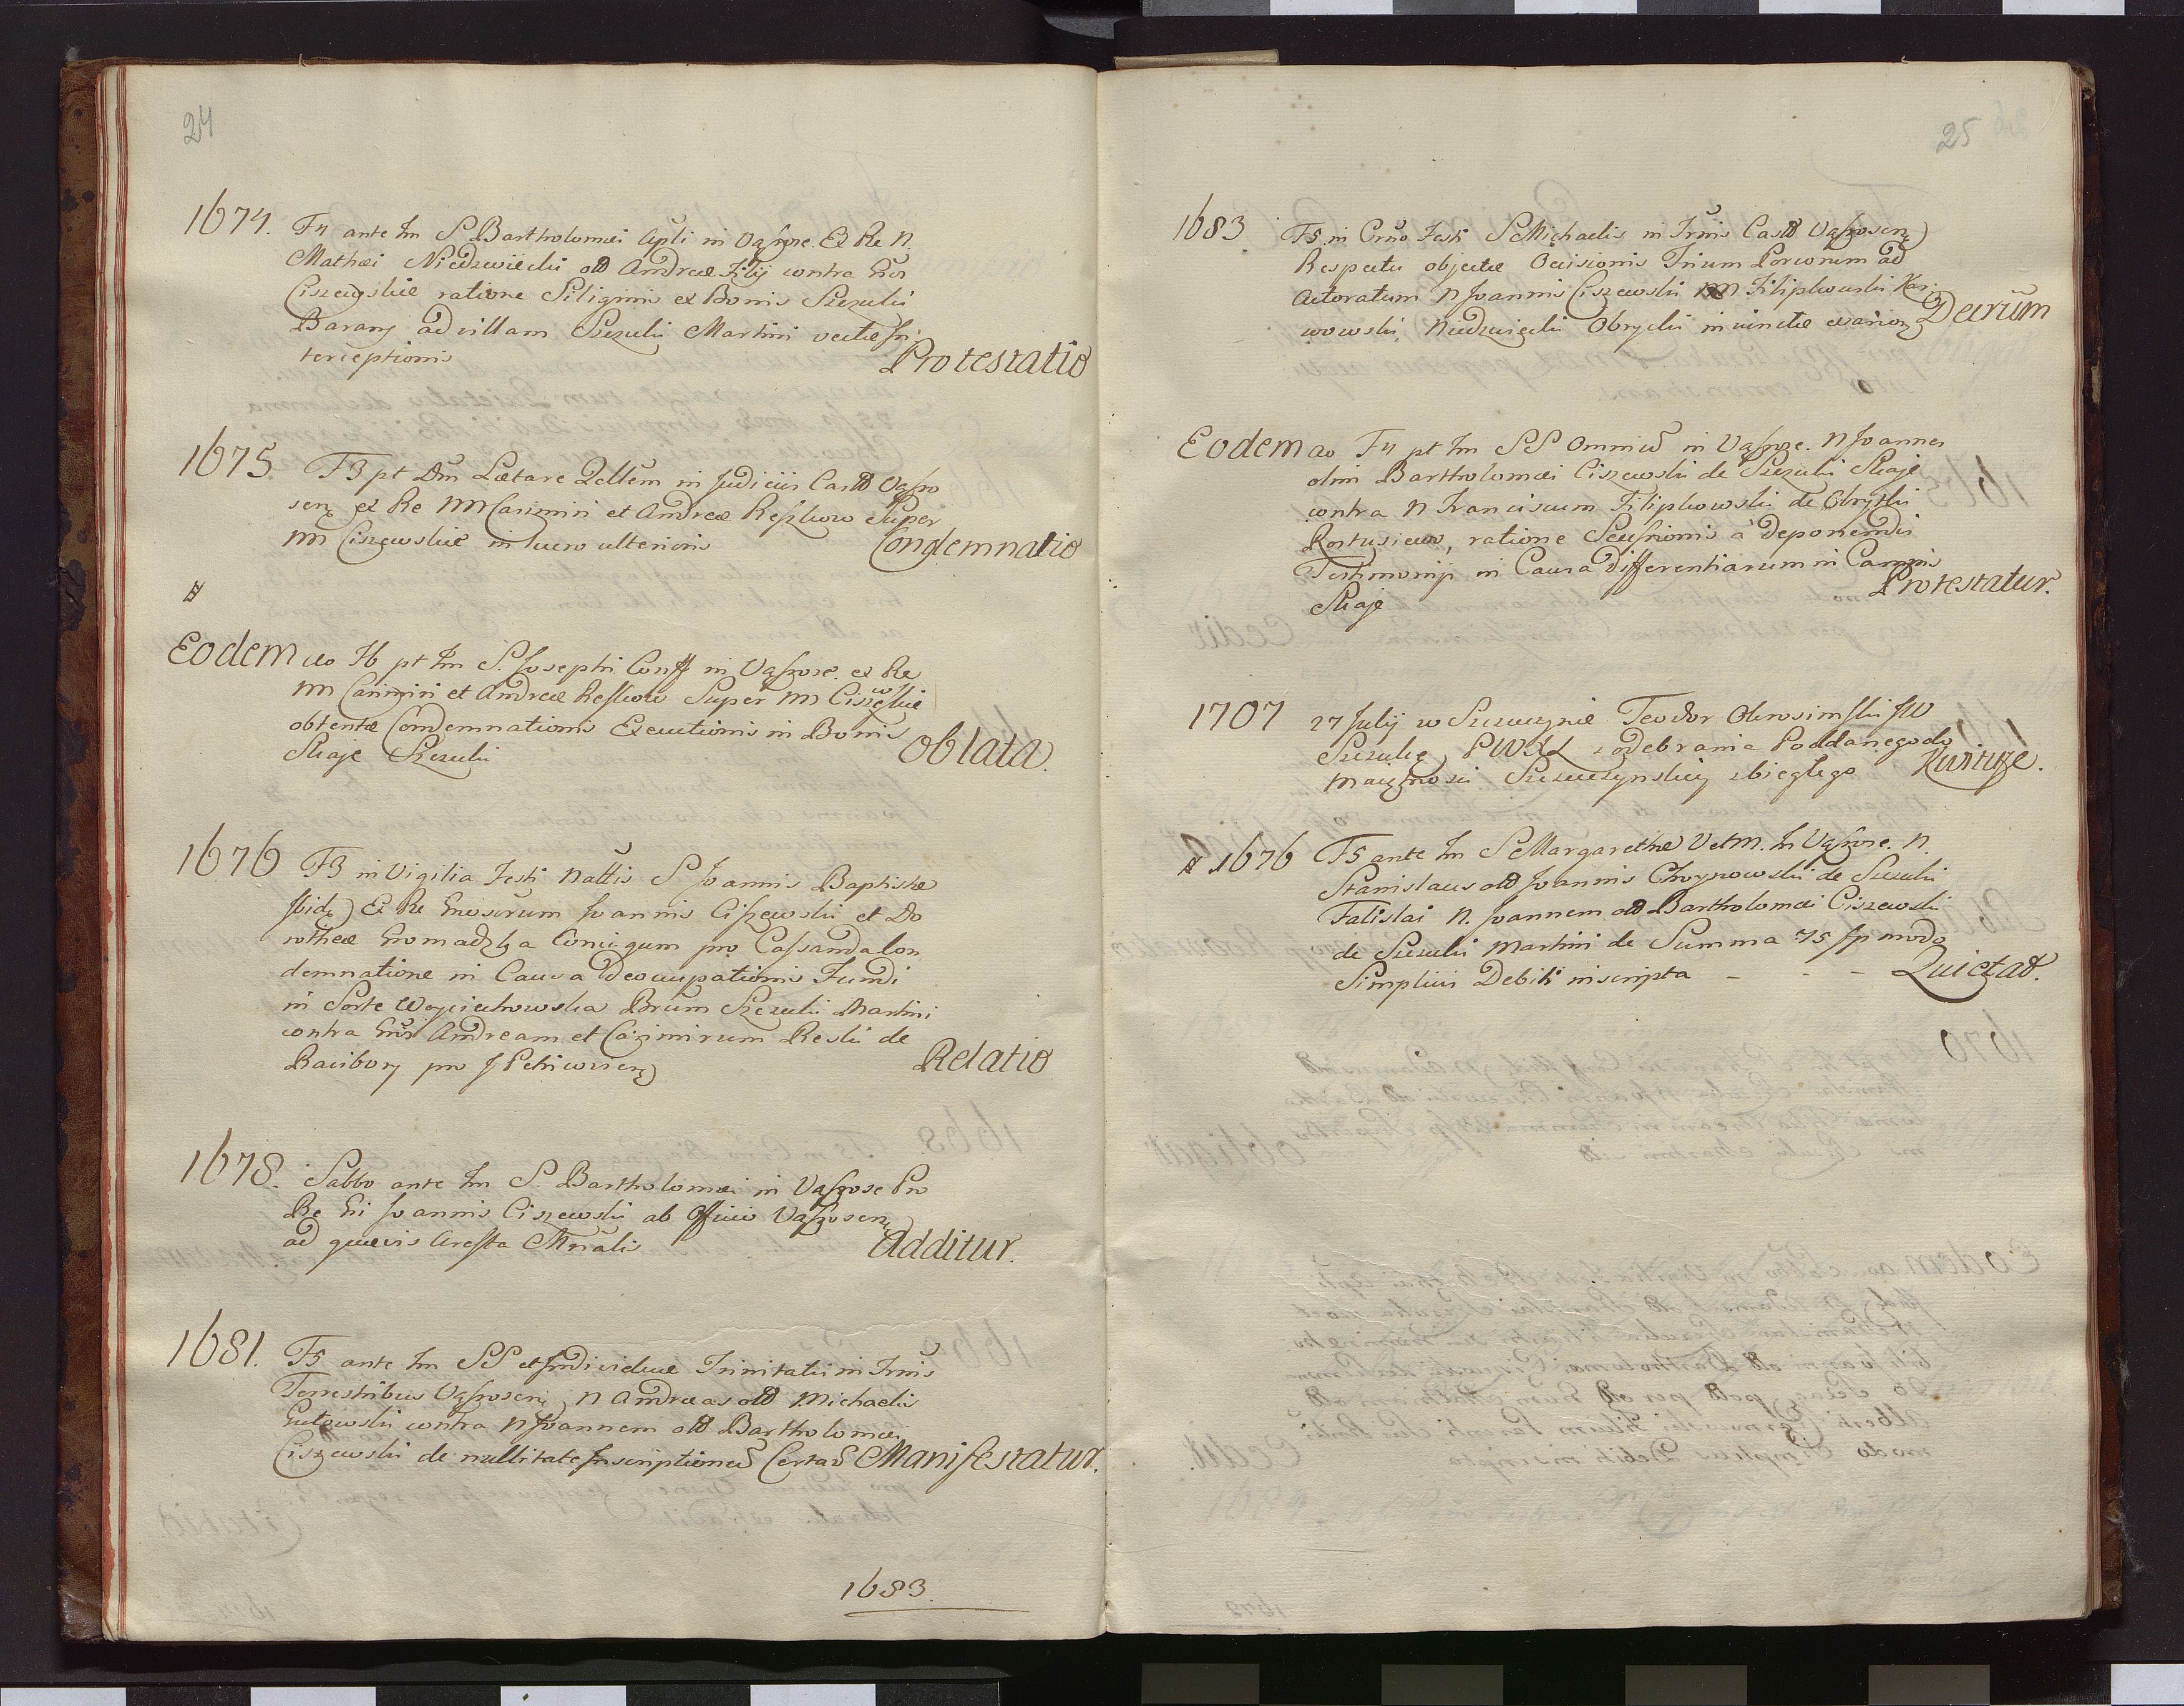 24
1674. F4 ante Fm S Bartholomæi Apli in Vąssose. Ex Re N.
Mathæi Niedzwiecki olď Andreæ Filij contra Gñs
Ciszewskie ratione Siliginis ex Bonis Szczuki
Barany ad villam Szczuki Martini vectæ In
terceptionis Protestatio
1675 F3 pt Dm Lætare in Judiciis Castř Vąsso
sen ex Re NN Casimiri et Andreæ Reszkow Super
NN Ciszewskie in lucro ulterioris Condemnatio
#
Eodem ao F6 pt Fm S. Josephi Conff in Vąssose. ex Re
NN Casimiri et Andreæ Reskow Super NN Ciszewskie
obtentæ Condemnationis Executionis in Bonis
Skaje Szczuki Oblata.
1676 F3 in Vigilia Festi Nattis S Joannis Baptistæ
Ibid Ex Re Gnosorum Joannis Ciszewski et Do
rotheæ Gromadzka Conjugum pro Cassanda Con
demnatione in Causa Deoccupationis Fundi
in Sorte Woyciechowska Brum Szczuki Martini
contra Gñs Andream et Casimirum Reski de
Racibory pro J Petricovien Relatio
1678. Sabbo ante Fm S. Bartholomæi in Vąssose Pro
Re Gi Joannis Ciszewski ab Officio Vąssosen
ad quævis Aresta Mnialis Additur.
1681. F5 ante Fm SS et Individuæ Trinitatis in Trnis
Terrestribus Vąssosen, N Andreas olď Michaelis
Gutowski contra N Joannem olď Bartholomæi
Ciszewski de nullitate Inscriptionum Certař Manifestatur.
1683.
25
1683 F5 in Crño Festi S Michaelis in Trnis Castř Vąssosen
Respectu objectæ Occisionis Trium Porcorum ad
Actoratum N Joannis Ciszewski NN Filipkowski Kar
wowski, Niedzwiecki Obrycki in vinctæ Decrum
Eodem ao F4 pt Fm SS Omnium in Vąssose. N Joannes
olim Bartholomæi Ciszewski de Szczuki Skaje
contra N Franciscum Filipkowski de Obrytki
Kostusiewo, ratione Secessionis à deponendis
Testimonijs in Causa Differentiarum in Campis
Skaje Protestatur.
1707 27 Julij w Szczuczynie Teodor Obrosimski
Szczukę, PWXL z odebrania Poddanego do
Maiętnosci Szczuczynskiey zbiegłego Kwituje.
# 1676 F5 ante Fm S Margarethæ V et M. In Vąssose. N.
Stanislaus olď Joannis Choynowski de Szczuki
Falislai N. Joannem olď Bartholomæi Ciszewski
de Szczuki Martini de Summa 75 fp modo
Simplicis Debiti inscripta - - - Quietat.